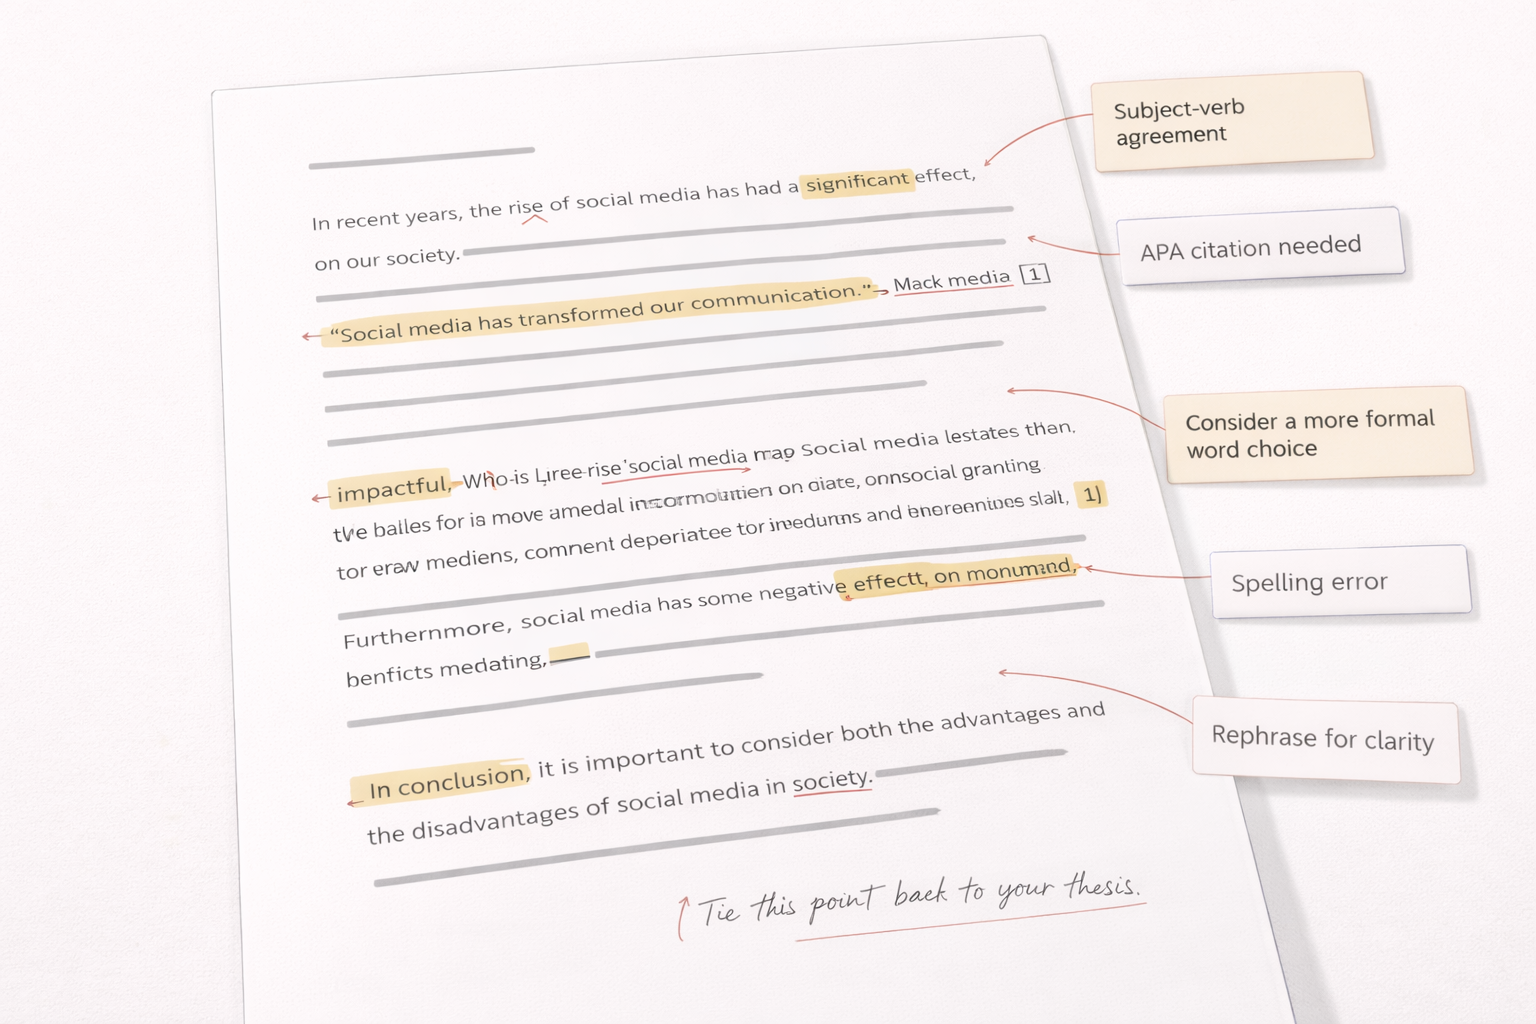 Subject-verb
agreement
In recent years, the rise of social media has had a significant effect,
on our society.
APA citation needed
“Social media has transformed our communication.” Mack media [1]
Consider a more formal
word choice
impactful, Who is rise social media map Social media lestates than.
the bailes for is move amedal on diate, onnsocial granting
tor eraw mediens, comnent deporiatee tor and slalt, 1)
Spelling error
Furthernmore, social media has some negative effectt, on monumand,
benficts medating,
Rephrase for clarity
In conclusion, it is important to consider both the advantages and
the disadvantages of social media in society.
Tie this point back to your thesis.